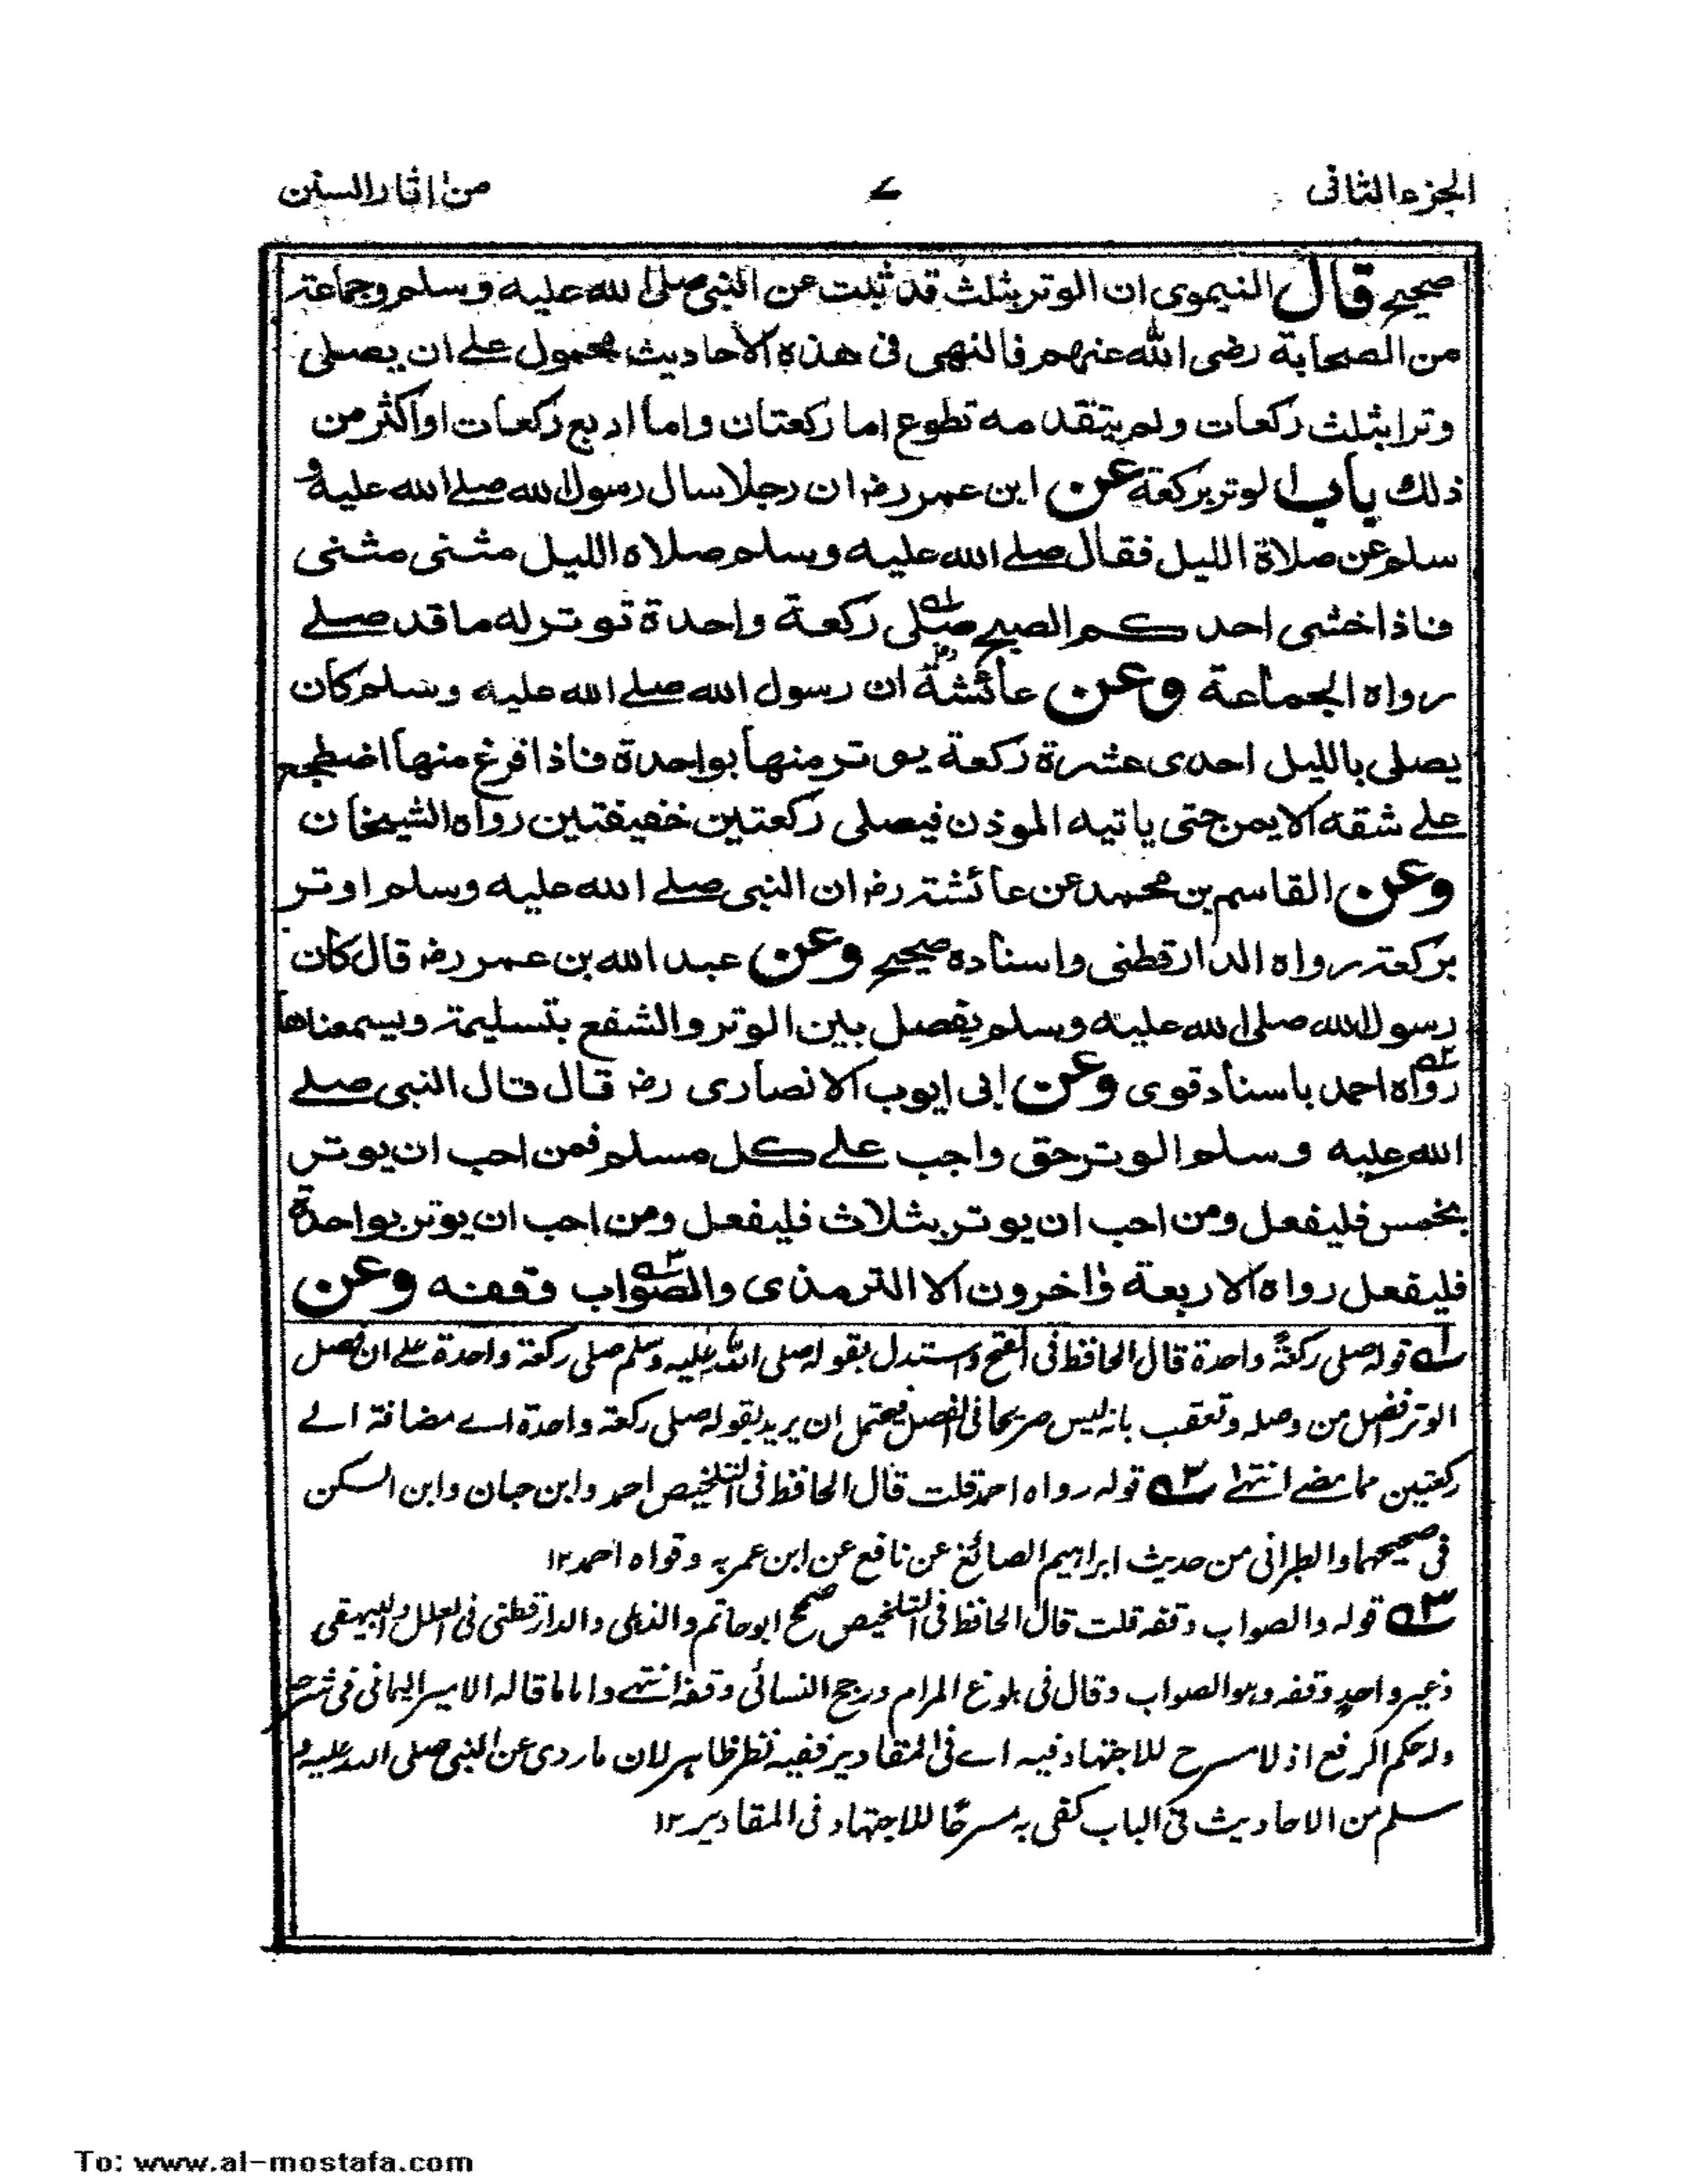 الجزء الثانى
٧
من اثار السنن
صحيح قال النيموى ان الوتر بثلث قد ثبت عن النبى صلى الله عليه وسلم وجماعة
من الصحابة رضى الله عنهم فالنهى فى هذه الاحاديث محمول على ان يصلى
وترا بثلث ركعات ولم يتقدمه تطوع اما ركعتان واما اربع ركعات او اكثر من
ذلك باب الوتر بركعة عن ابن عمر رض ان رجلا سال رسول الله صلے الله عليه و
سلم عن صلاة الليل فقال صلے الله عليه وسلم صلاة الليل مثنى مثنى
فاذا خشى احدكم الصبح صلى ركعة واحدة توتر له ما قد صلے
رواه الجماعة وعن عائشة رض ان رسول الله صلے الله عليه وسلم كان
يصلى بالليل احدى عشرة ركعة يوتر منها بواحدة فاذا فرغ منها اضطجع
علے شقه الايمن حتى ياتيه الموذن فيصلى ركعتين خفيفتين رواه الشيخان
وعن القاسم بن محمد عن عائشة رض ان النبى صلے الله عليه وسلم اوتر
بركعة رواه الدارقطنى واسناده صحيح وعن عبد الله بن عمر رض قال كان
رسول الله صلى الله عليه وسلم يفصل بين الوتر والشفع بتسليمة ويسمعناها
رواه احمد باسناد قوى وعن ابى ايوب الانصارى رض قال قال النبى صلے
الله عليه وسلم الوتر حق واجب علے كل مسلم فمن احب ان يوتر
بخمس فليفعل ومن احب ان يوتر بثلاث فليفعل ومن احب ان يوتر بواحدة
فليفعل رواه الاربعة واخرون الا الترمذى والصواب وقفه وعن
١ه قوله صلى ركعة واحدة قال الحافظ فى الفتح واستدل بقوله صلى الله عليه وسلم صلى ركعة واحدة علے ان فصل
الوتر افضل من وصله وتعقب بانه ليس صريحا فى الفصل فيحتمل ان يريد بقوله صلى ركعة واحدة اے مضافة الے
ركعتين مما مضے انتهے ٢ه قوله رواه احمد قلت قال الحافظ فى التلخيص احمد وابن حبان وابن السكن
فى صحيحهما والطبرانى من حديث ابراهيم الصائغ عن نافع عن ابن عمر به وقواه احمد ١٢
٣ه قوله والصواب وقفه قلت قال الحافظ فى التلخيص صحح ابو حاتم والذهلى والدارقطنى فى العلل والبيهقى
وغير واحد وقفه وهو الصواب وقال فى بلوغ المرام ورجح النسائى وقفه انتهے واما ما قاله الامير اليمانى فى شرحه
وله حكم الرفع اذ لا مسرح للاجتهاد فيه اے فى المقادير ففيه نظر ظاهر لان ما روى عن النبى صلى الله عليه و
سلم من الاحاديث فى الباب كفى به مسرحا للاجتهاد فى المقادير ١٢
To: www.al-mostafa.com